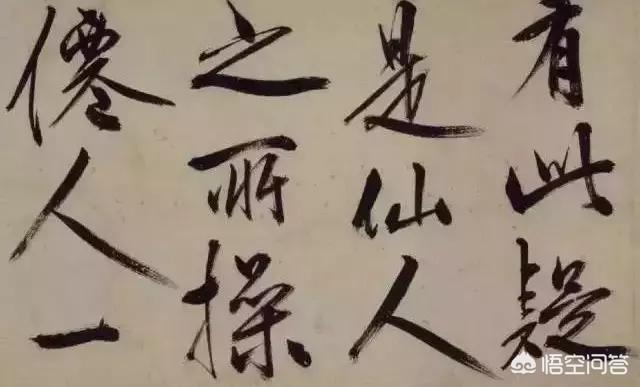 有此疑
是仙人
之所操
僊人一
悟空问答